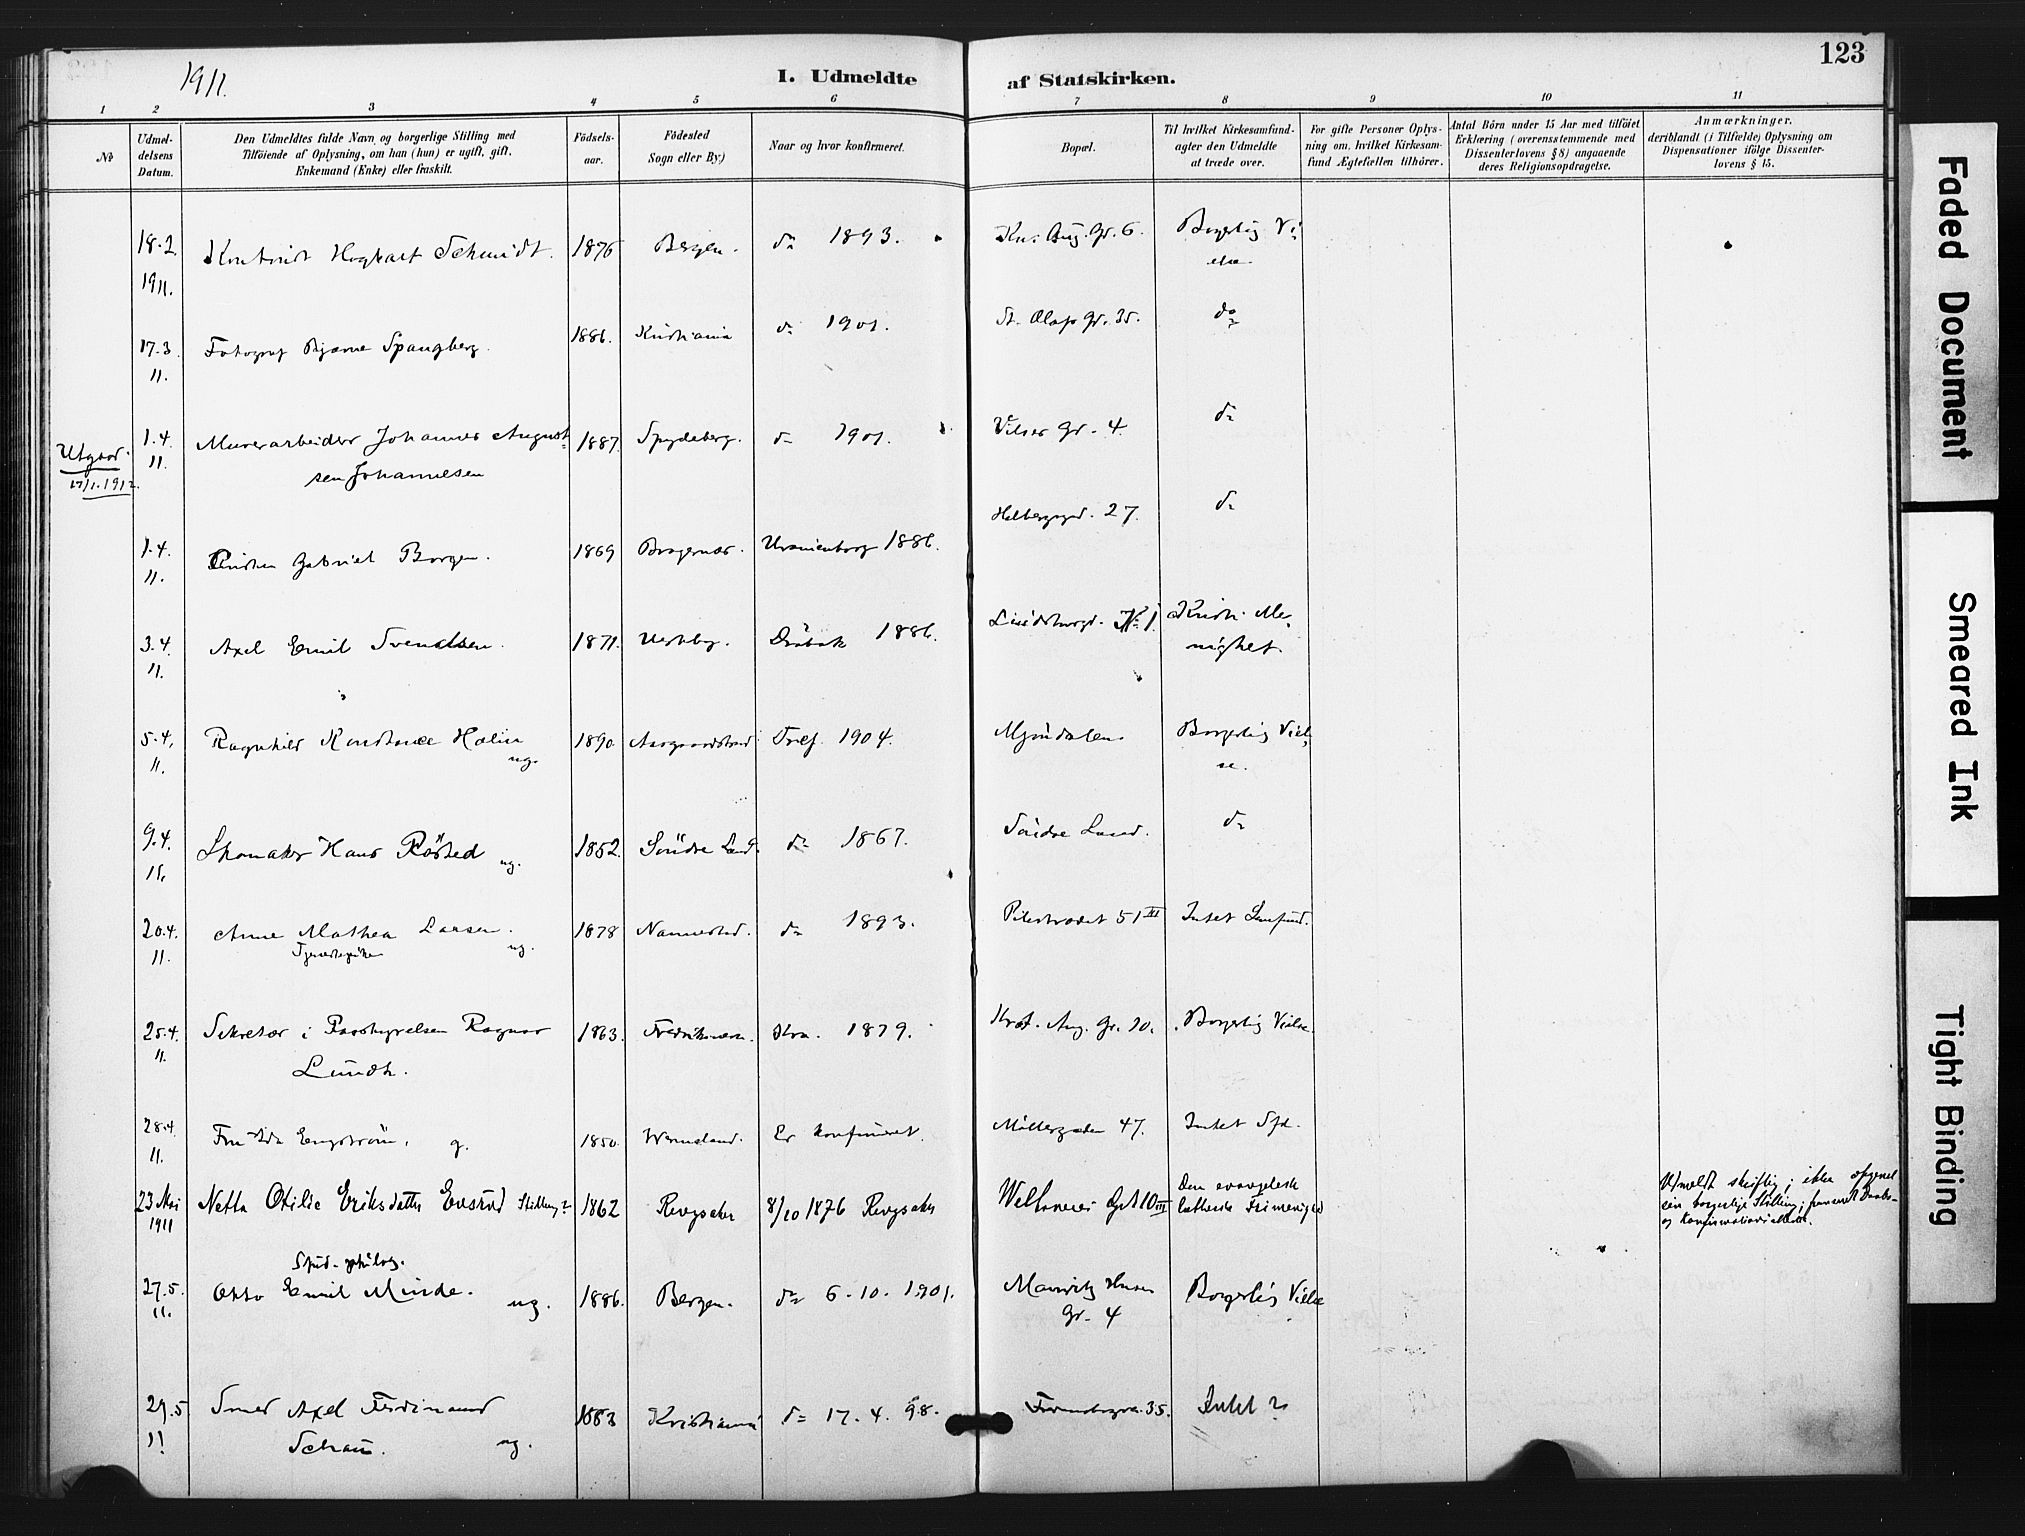 1911.
I. Udmeldte af Statskirken.
123
1 2 3 4 5 6 7 8 9 10 11
No
Udmel-
delsens
Datum.
Den Udmeldtes fulde Navn og borgerlige Stilling med
Tilföiende af Oplysning, om han (hun) er ugift, gift,
Enkemand (Enke) eller fraskilt.
Födsels-
aar.
Födested
Sogn eller By)
Naar og hvor konfirmeret.
Bopæl.
Til hvilket Kirkesamfund-
agter den Udmeldte
at træde over.
For gifte Personer Oplys-
ning om, hvilket Kirkesam-
fund Ægtefællen tilhörer.
Antal Börn under 15 Aar med tilföiet
Erklæring (overensstemmende med
Dissenterlovens § 8) angaaende
deres Religionsopdragelse.
Anmærkninger.
deriblandt (i Tilfælde) Oplysning om
Dispensationer ifölge Dissenter-
lovens § 15.
18.2. Schmidt. 1876 Bergen. do 1893. Aug. Gr. 6. Borgerlig Vi-
1911. else
17.3. Fotograf Bjarne Spangberg. 1886. Kristiania do 1901. St. Olafs Gr. 35. do
11.
1.4. Murerarbeider Johannes August- 1887. Spydeberg. do 1901. Gr. 4. do
11. sen Johannesen
17/1.1912.
1.4. Gabriel Borgen. 1869 Bragernæs. Uranienborg 1886. 27. do
11.
3.4. Axel Emil Svendsen. 1871. Vestby. Dröbak 1886. No 1. Kristi Me-
11. nighet.
5.4. Ragnhild Konstance Holm 1890. Aasgaardstrand 1904. Mjöndalen. Borgerlig Viel-
11. ug. se.
9.4. Skomaker Hans Rösted ug. 1852. Söndre Land. do 1867. Söndre Land. do
11.
20.4. Anne Mathea Larsen. 1878 Nannestad. do 1893. Pilestrædet 51 III Intet Samfund.
11. Tjenestepike ug.
25.4. Sekretær i Ragnar 1863. Fredriksværn. Kra. 1879. Aug. Gr. 10. Borgerlig Vielse.
11. Lundh.
28.4. Fru Ida Engström, g. 1850. Wermeland. Er konfirmeret. Möllergaden 47. Intet Sfd.
11.
23 Mai Netta Otilie Eriksdatter Evsrud Stilling? 1862 Ringsaker 8/10 1876 Ringsaker 10 III Den evangelisk
1911 lutherske Frimenighed
Udmeldt skriftlig; ikke opgivet
sin borgerlige Stilling; Daabs-
og Konfirmationsattest.
Stud. philos.
27.5. Otto Emil Minde. ug. 1886. Bergen. do 6.10.1901. Mauritz Hansens Borgerlig Vielse
11. Gr. 4
29.5 Smed Axel Ferdinand 1883 Kristiania do 17.4.98. 35. Intet?
11 Schau. ug.
Faded Document
Smeared Ink
Tight Binding